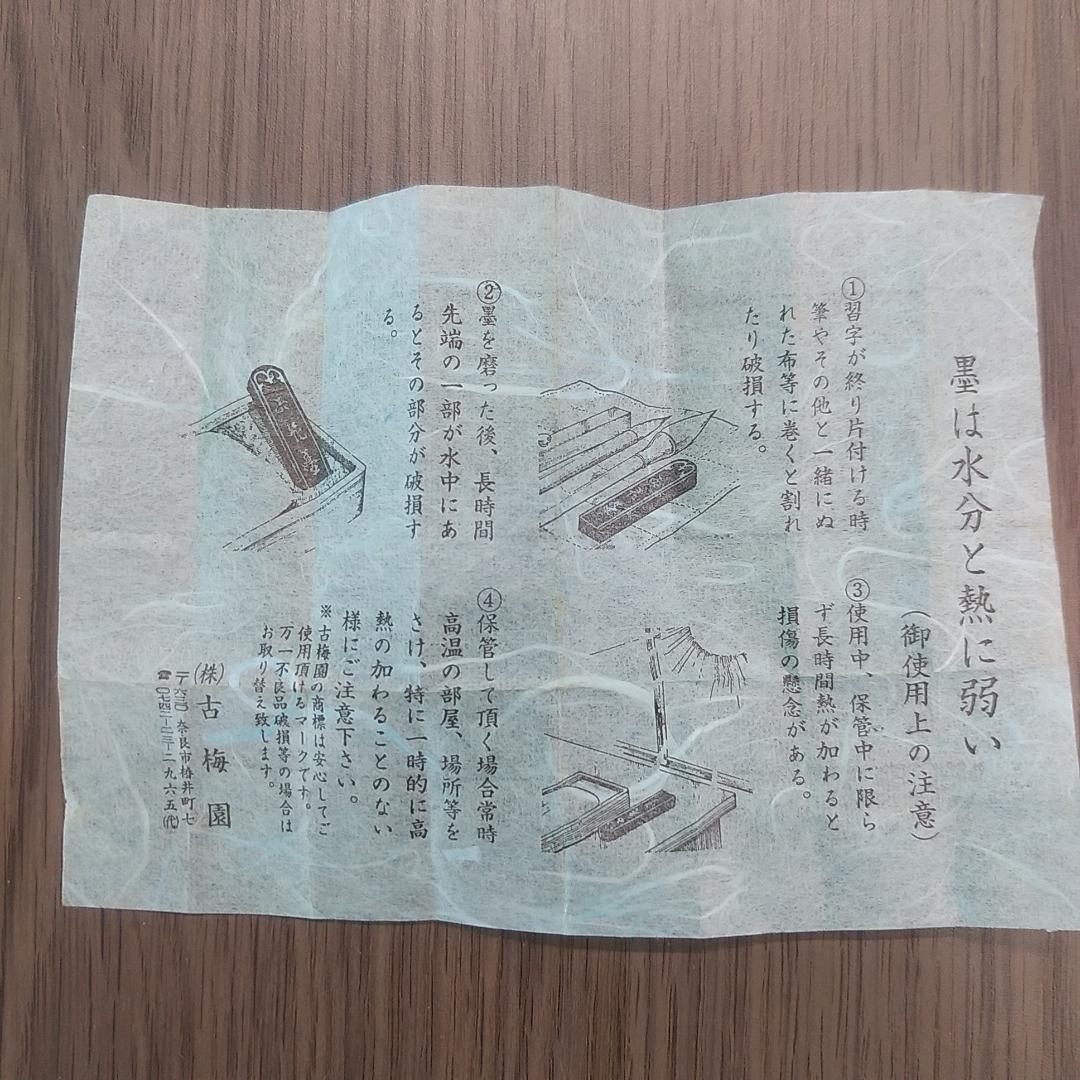 墨は水分と熱に弱い
(御使用上の注意)
①習字が終り片付ける時
筆やその他と一緒にぬ
れた布等に巻くと割れ
たり破損する。
②墨を磨った後、長時間
先端の一部が水中にあ
るとその部分が破損す
る。
③使用中、保管中に限ら
ず長時間熱が加わると
損傷の懸念がある。
④保管して頂く場合常時
高温の部屋、場所等を
さけ、特に一時的に高
熱の加わることのない
様にご注意下さい。
※古梅園の商標は安心してご
使用頂けるマークです。
万一不良品破損等の場合は
お取り替え致します。
(株)古梅園
奈良市椿井町七
☎〇七四二-二三-二九六五(代)